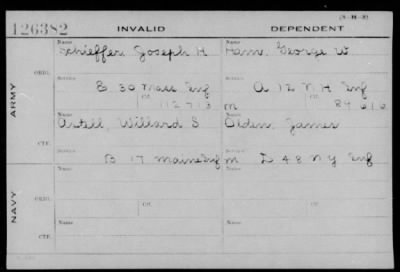 126382 INVALID DEPENDENT
Name Name
Schieffer, Joseph H Ham, George W
ORIG. Service Service
B 30 Mass Inf A 12 N H Inf
Ctf. Ctf.
112713 m 84616
ARMY
Name Name
Artell, Willard S Olden, James
CTF. Service Service
B 17 Maine Inf m D 48 N Y Inf
NAVY
ORIG. Name Name
Ctf. Ctf.
CTF. Name Name